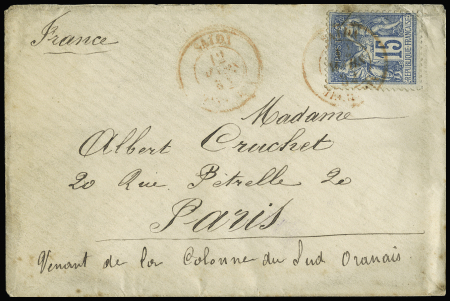 France
SAIDA
12
15
REPUBLIQUE FRANCAISE
Madame
Albert Cruchet
20 Rue Pétrelle 20
Paris
Venant de la Colonne du Sud Oranais